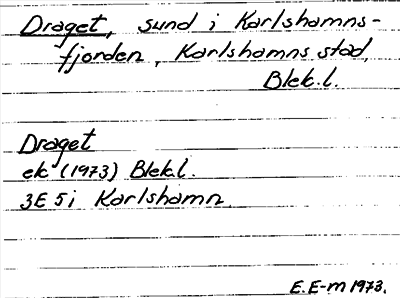 Draget, sund i Karlshamns-
fjorden, Karlshamns stad,
Blek.l.
Draget
ek (1973) Blek.l.
3E 5i Karlshamn
E.E-m 1973.